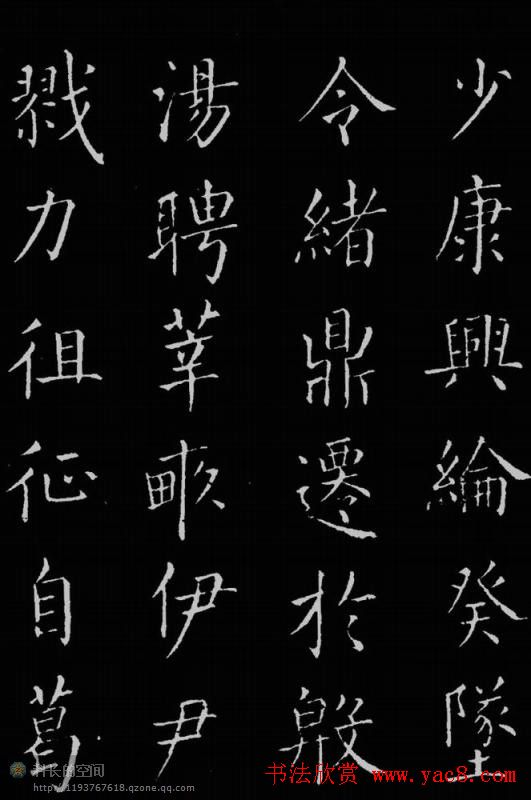 少康興綸癸墜
令緒鼎遷於殷
湯聘莘畎伊尹
戮力徂征自葛
科长的空间
http://1193767618.qzone.qq.com
书法欣赏 www.yac8.com